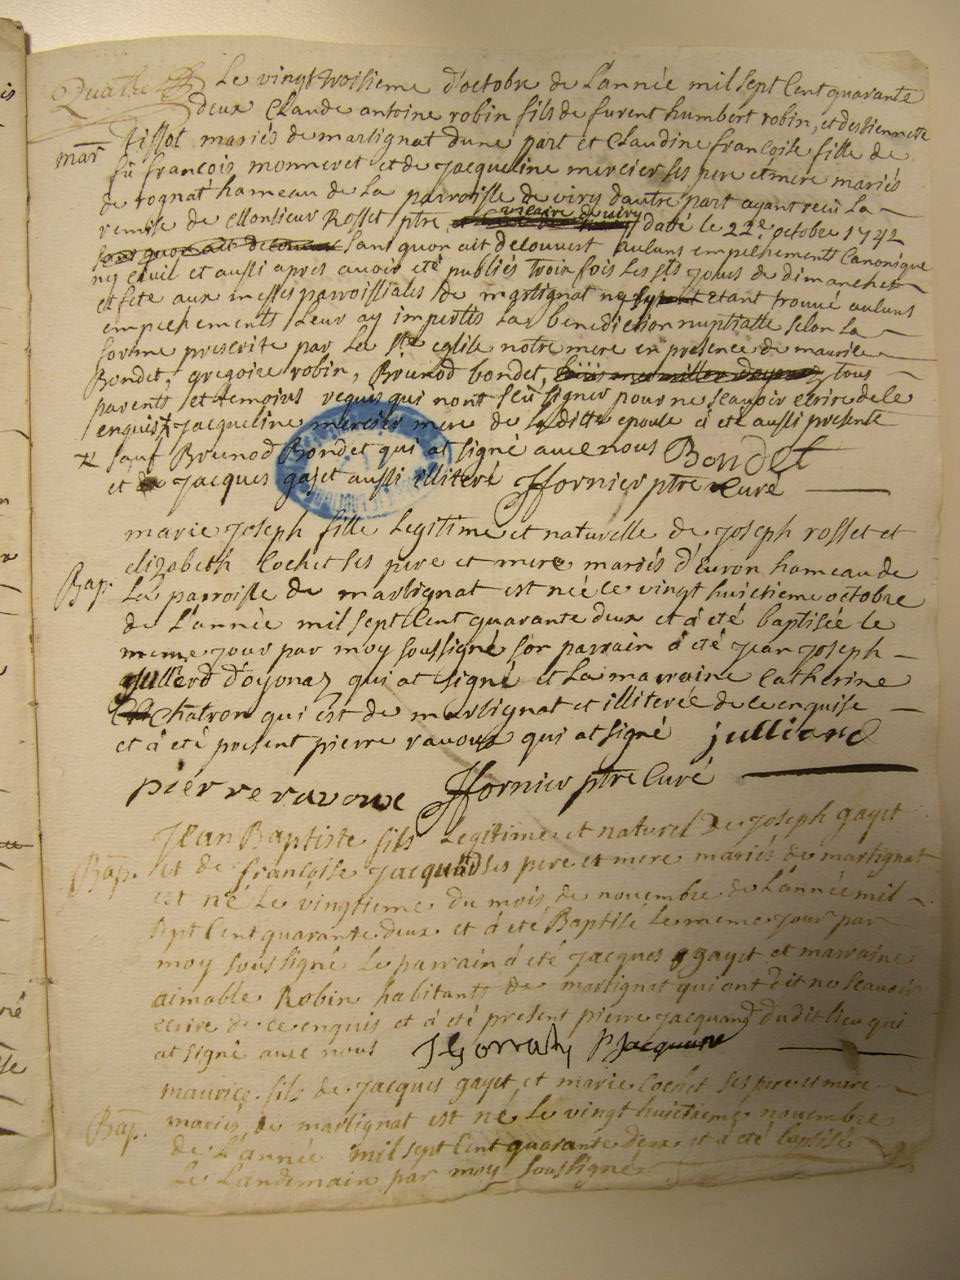 Le vingttroisieme d'octobre de L'année mil sept Cent quarante
deux Claude antoine robin fils de furent humbert robin, et d'estiennette
mar
tissot mariés de martignat d'une part et Claudine françoise fille de
fû françois monneret et de jacqueline mercier ses pere et mere mariés
de rognat hameau de La parroisse de viry d'autre part ayant recû La
remise de Monsieur Rosset ptre vicaire de viry daté le 22e octobre 1742
sans quon ait decouvert aucuns empechements Canonique
ny Civil et aussi apres avoir eté publiés trois fois Les sts jours de dimanches
et fete aux messes parroissiales de martignat ne etant trouvé aucuns
empechements Leur ay impertis La benediction nuptialle selon La
forme prescrite par La ste eglise notre mere en presence de maurice
Bondet, gregoire robin, Brunod bondet, tous
parents et temoins requis qui nont sçû signer pour ne sçavoir ecrire de ce
enquis jacqueline mercier mere de Laditte epouse a été aussi presente
sauf Brunod Bondet qui at signé avec nous Bondet
et jacques gajet aussi illiteré JfFornier ptre Curé
marie joseph fille Legitime et naturelle de joseph rosset et
elizabeth Cochet ses pere et mere mariés d'Evron hameau de
Bap.
La parroisse de martignat est née ce vingthuictieme octobre
de L'année mil sept Cent quarante deux et à été baptisée le
meme jour par moy soussigné son parrain à été jean joseph
jullierd d'oyonaz qui at signé et La marraine Catherine
Chatron qui est de martignat et illiterée de ce enquise
et à été present pierre ravoux qui at signé julliard
pierre ravoux JfFornier ptre Curé
Jean Baptiste fils Legitime et naturel de joseph gayet
Bap.
et de françoise jacquand ses pere et mere mariés de martignat
est né Le vingtieme du mois de novembre de L'année mil
sept Cent quarante deux et à été Baptisé Le meme jour par
moy soussigné Le parrain à été jacques gayet et marraine
aimable Robin habitants de martignat qui ont dit ne sçavoir
ecrire de ce enquis et à été present pierre jacquand dudit lieu qui
at signé avec nous P Jacquand
maurice fils de jacques gayet et marie Cochet ses pere et mere
Bap.
mariés de martignat est né Le vingt huictieme novembre
de L'année mil sept Cent quarante deux et à été baptisé
Le Landemain par moy soussigné